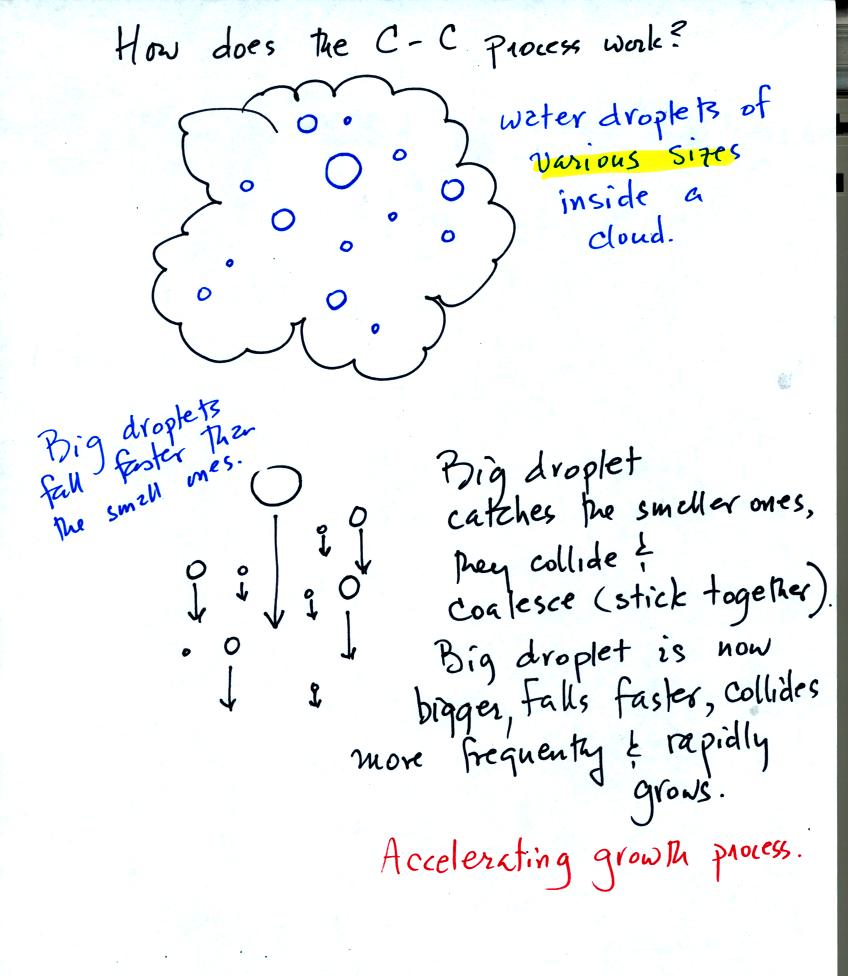 How does the C-C process work?
water droplets of
various sizes
inside a
cloud.
Big droplets
fall faster than
the small ones.
Big droplet
catches the smaller ones,
they collide &
coalesce (stick together).
Big droplet is now
bigger, falls faster, collides
more frequently & rapidly
grows.
Accelerating growth process.